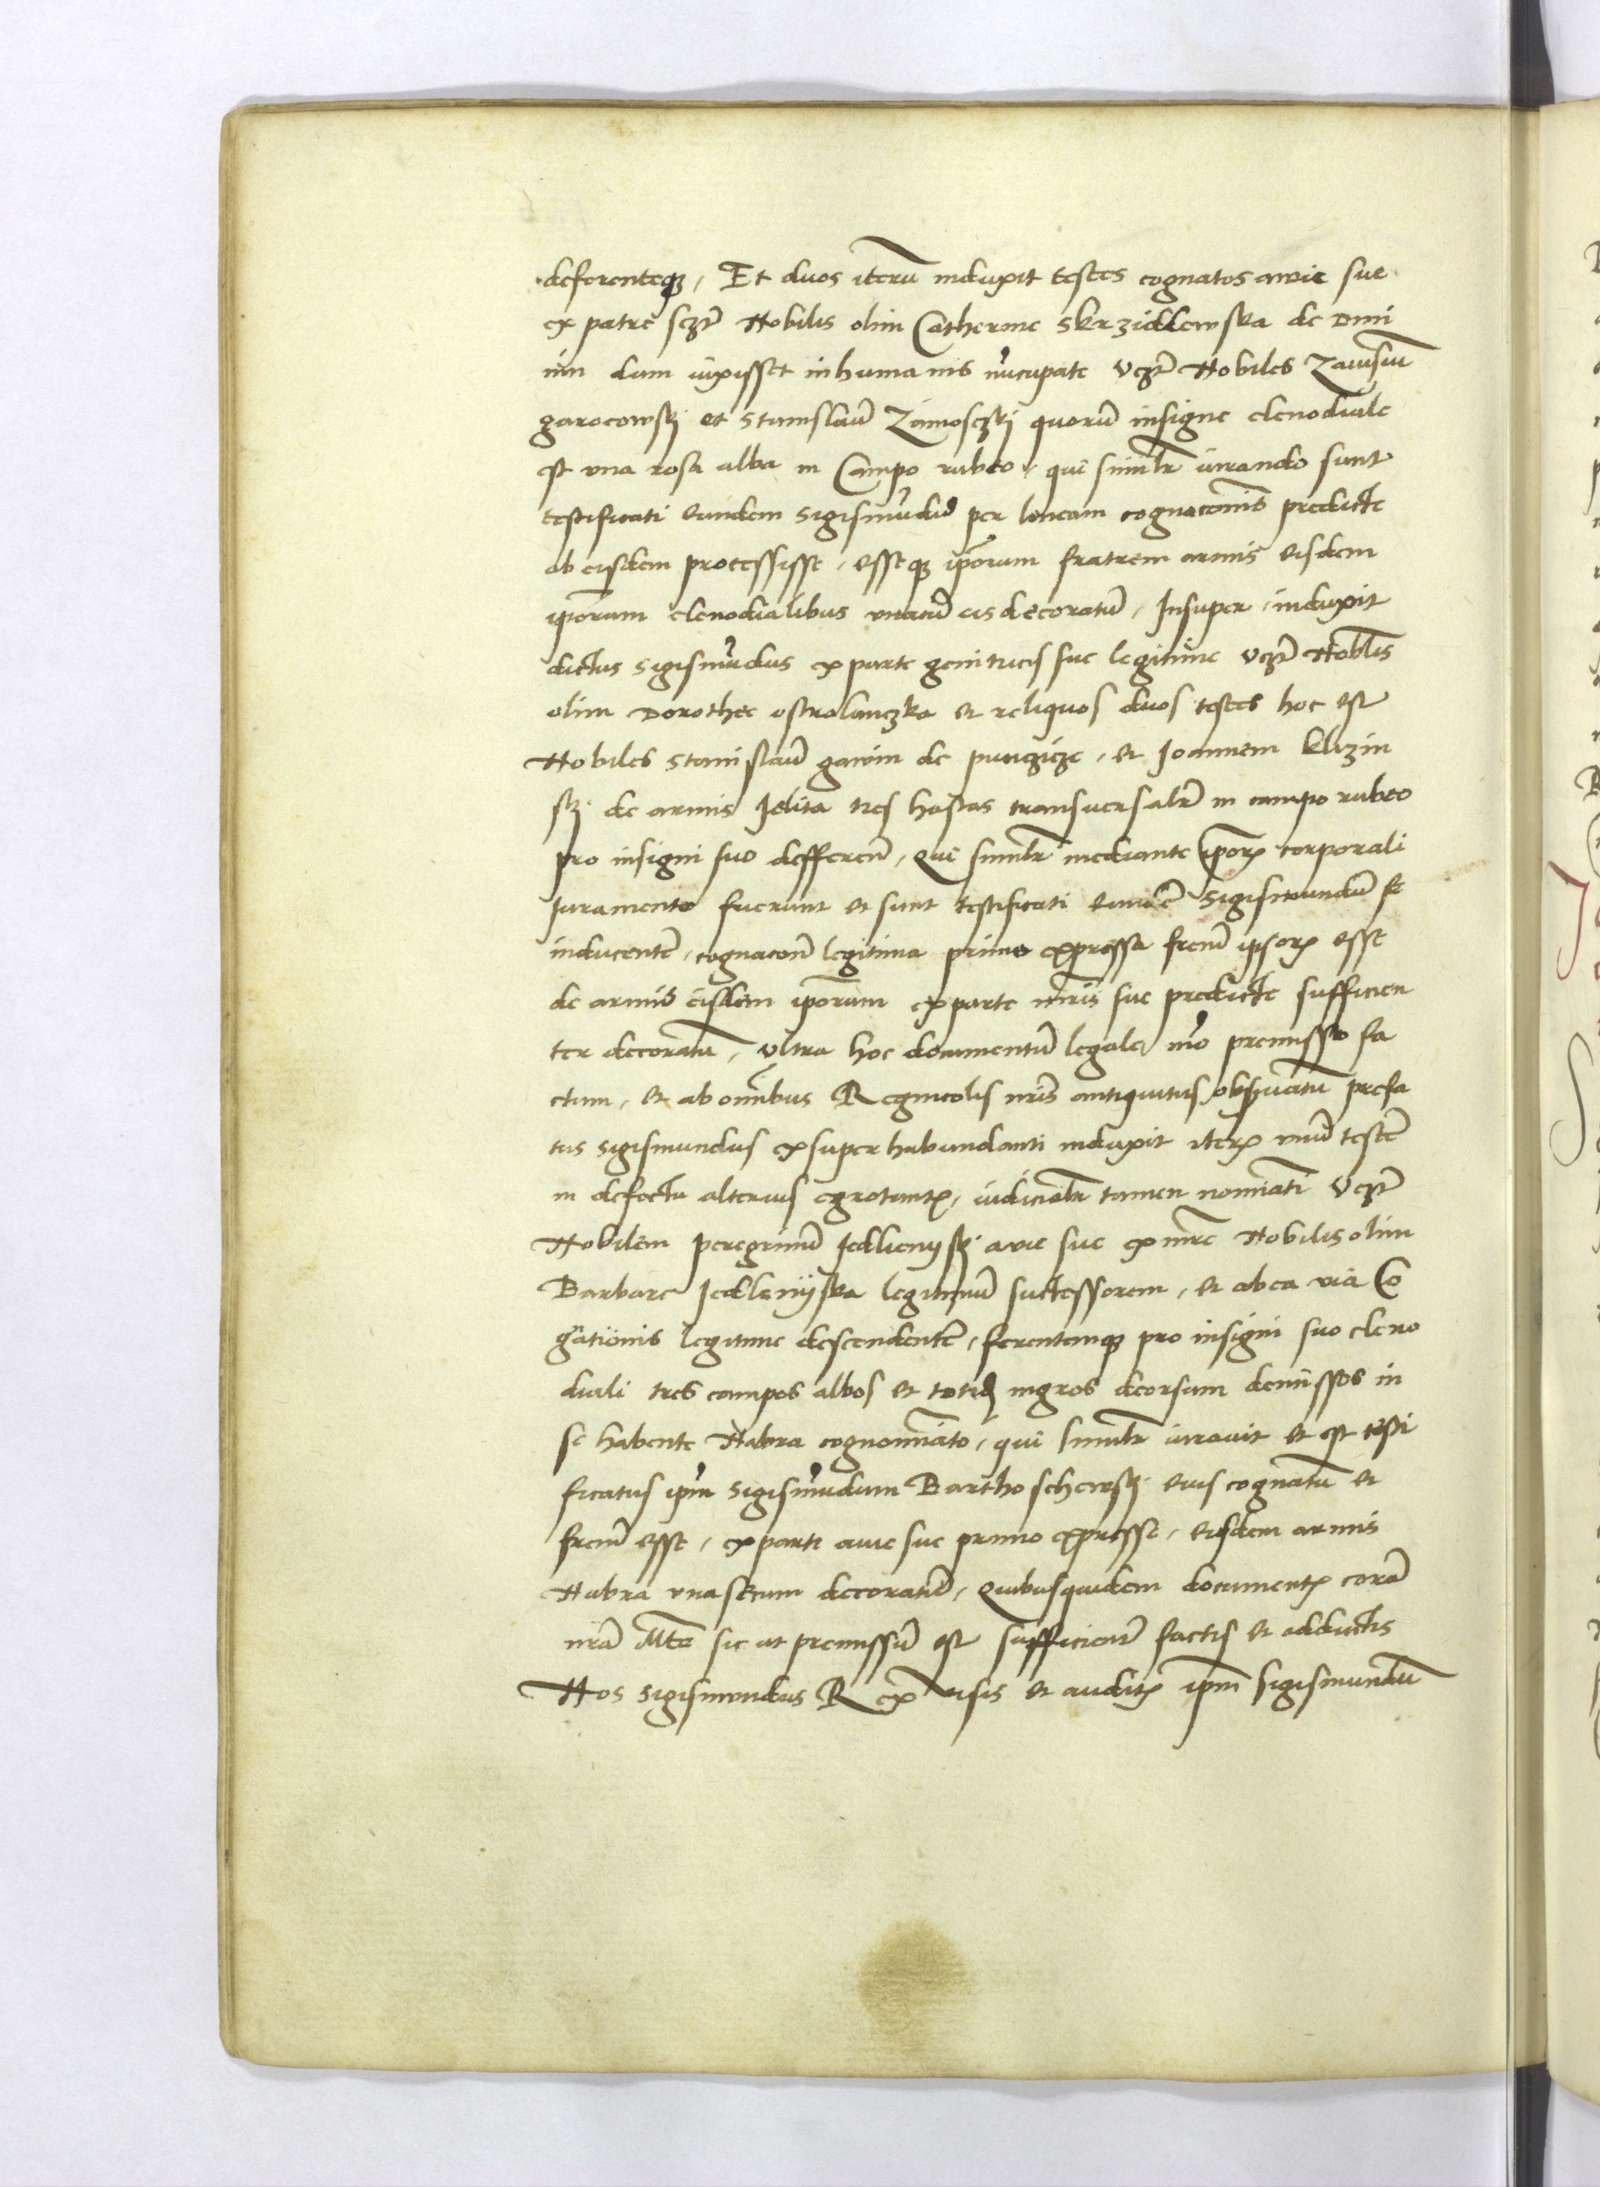 deferenteqꝫ, Et duos iterū induxit testes cognatos awie sue
ex patre sczt Nobilis olim Catherine Skrzidlewska de Dmi
nin dum vixisset in humanis nūcupate vczt Nobiles Zauisiū
garocowskj et Stanislaū Zamosczkj quorū insigne clenodiale
est vna rosa alba in Campo rubeo, qui similr iurando sunt
testificati eundem Sigismūdū per lineam cognacoīnis predicte
ab eisdem processisse, esseqꝫ ipōrum fratrem armis eisdem
ipōrum clenodialibus vnacū eis decoratū, Insuper, induxit
dictus Sigismūdus ex parte genitricis sue legitime vczt Nobilis
olim Dorothee ostrolanczka et reliquos duos testes hoc est
Nobiles Stanislaū gawin de , et Joannem klizin
skj de armis Jelita tres hastas transuersalr in campo rubeo
pro insigni suo defferen, Qui similr mediante ipōrꝫ corporali
Iuramento fuerunt et sunt testificati eundē Sigismundū se
inducentē, cognacoē legitima primo expressa frem ipsorꝫ esse
de armis eisdem ipōrum ex parte mris sue predicte sufficien
ter decoratū, vltra hoc documentū legale mō premisso fa
ctum, et ab omībus Regnicolis nris antiquitus obseruatū prefa
tus Sigismundus ex superhabundanti induxit iterꝫ vnū testē
in defectu alterius egrotantꝫ, iudicialr tamen nominati vczt
Nobilem peregrinū Jedlienyskj avie sue ex mre Nobilis olim
Barbare Jedlenyska legitimū successorem, et ab ea via Co
gnātionis legitime descendentē, ferentemqꝫ pro insigni suo cleno
diali tres campos albos et totidꝫ nigros deorsum demissos in
se habente Nabra cognominato, qui similr iurauit et est testi
ficatus ipm Sigismūdum Barthoschewskj eius cognatū et
frem esse, ex parte auie sue primo expresse, eisdem armis
Nabra vnasecum decoratū, Quibusquidem documentꝫ corā
nrā Mte sic ut premissū est sufficientr factis et adductis
Nos Sigismundus Rex visis et auditꝫ ipm Sigismundū